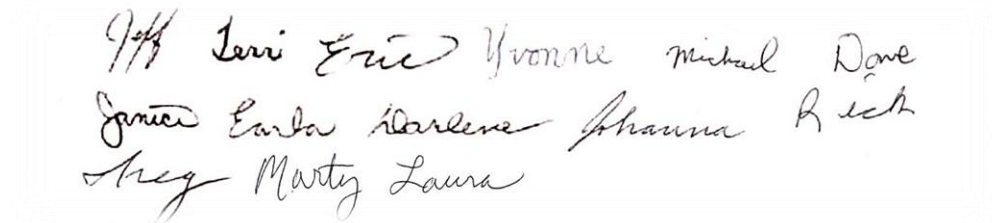 Jeff Terri Eric Yvonne Michael Dave
Janice Earla Darlene Johanna Rick
Greg Marty Laura